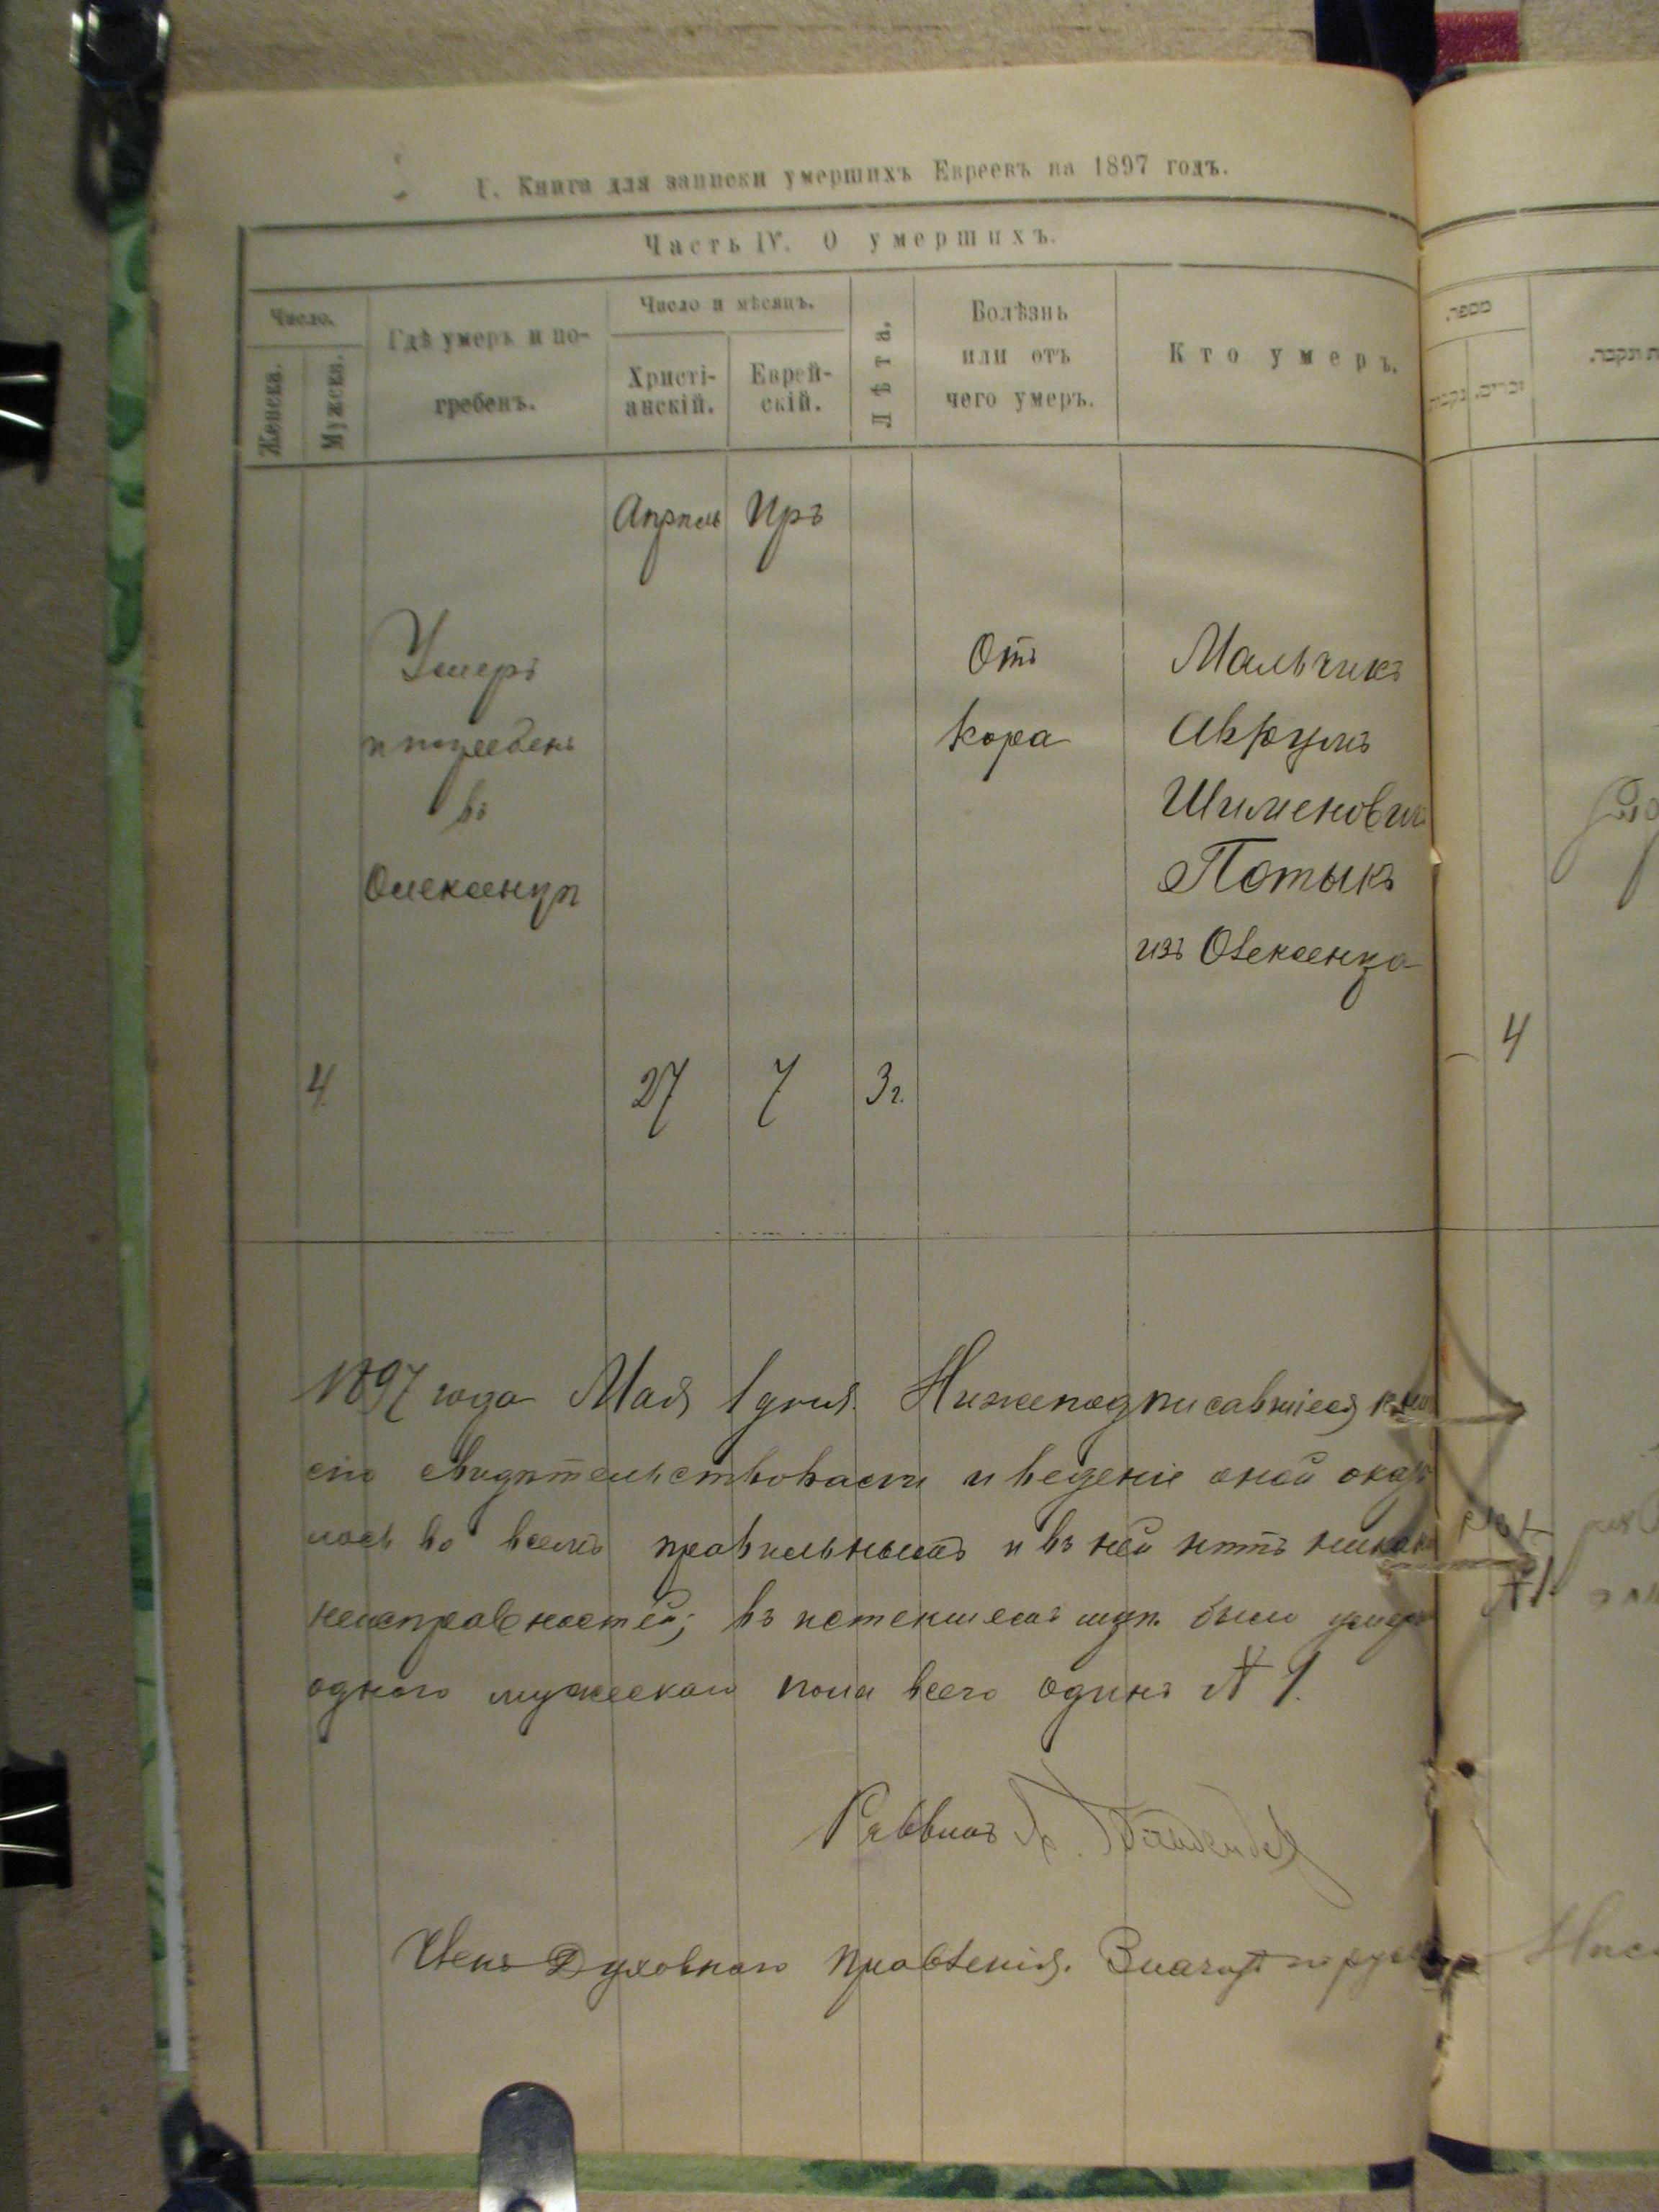 Г. Книга для записки умершихъ Евреевъ на 1897 годъ.
Часть IV. О умершихъ.
Число.
Женска.
Мужеска.
Гдѣ умеръ и по-
гребенъ.
Число и мѣсяцъ.
Христі-
анскій.
Еврей-
скій.
Лѣта.
Болѣзнь
или отъ
чего умеръ.
Кто умеръ.
מספר.
זכרים.
נקבות
Апрѣль Иръ
Умеръ
и погребенъ
въ
Отъ
кора
Мальчикъ
Аврумъ
Шименович
Потыкъ
изъ
4 27 7 3 г.
4
1897 года Мая 1 дня. Нижеподписавшіеся
сію свидѣтельствовали и веденіе оной оказа
лось во всемъ правильнымъ и въ ней нѣтъ никаки
неисправностей; въ истекшемъ мцѣ было умерш
одного мужескаго пола всего одинъ № 1.
Раввинъ
Членъ Духовнаго Правленія.